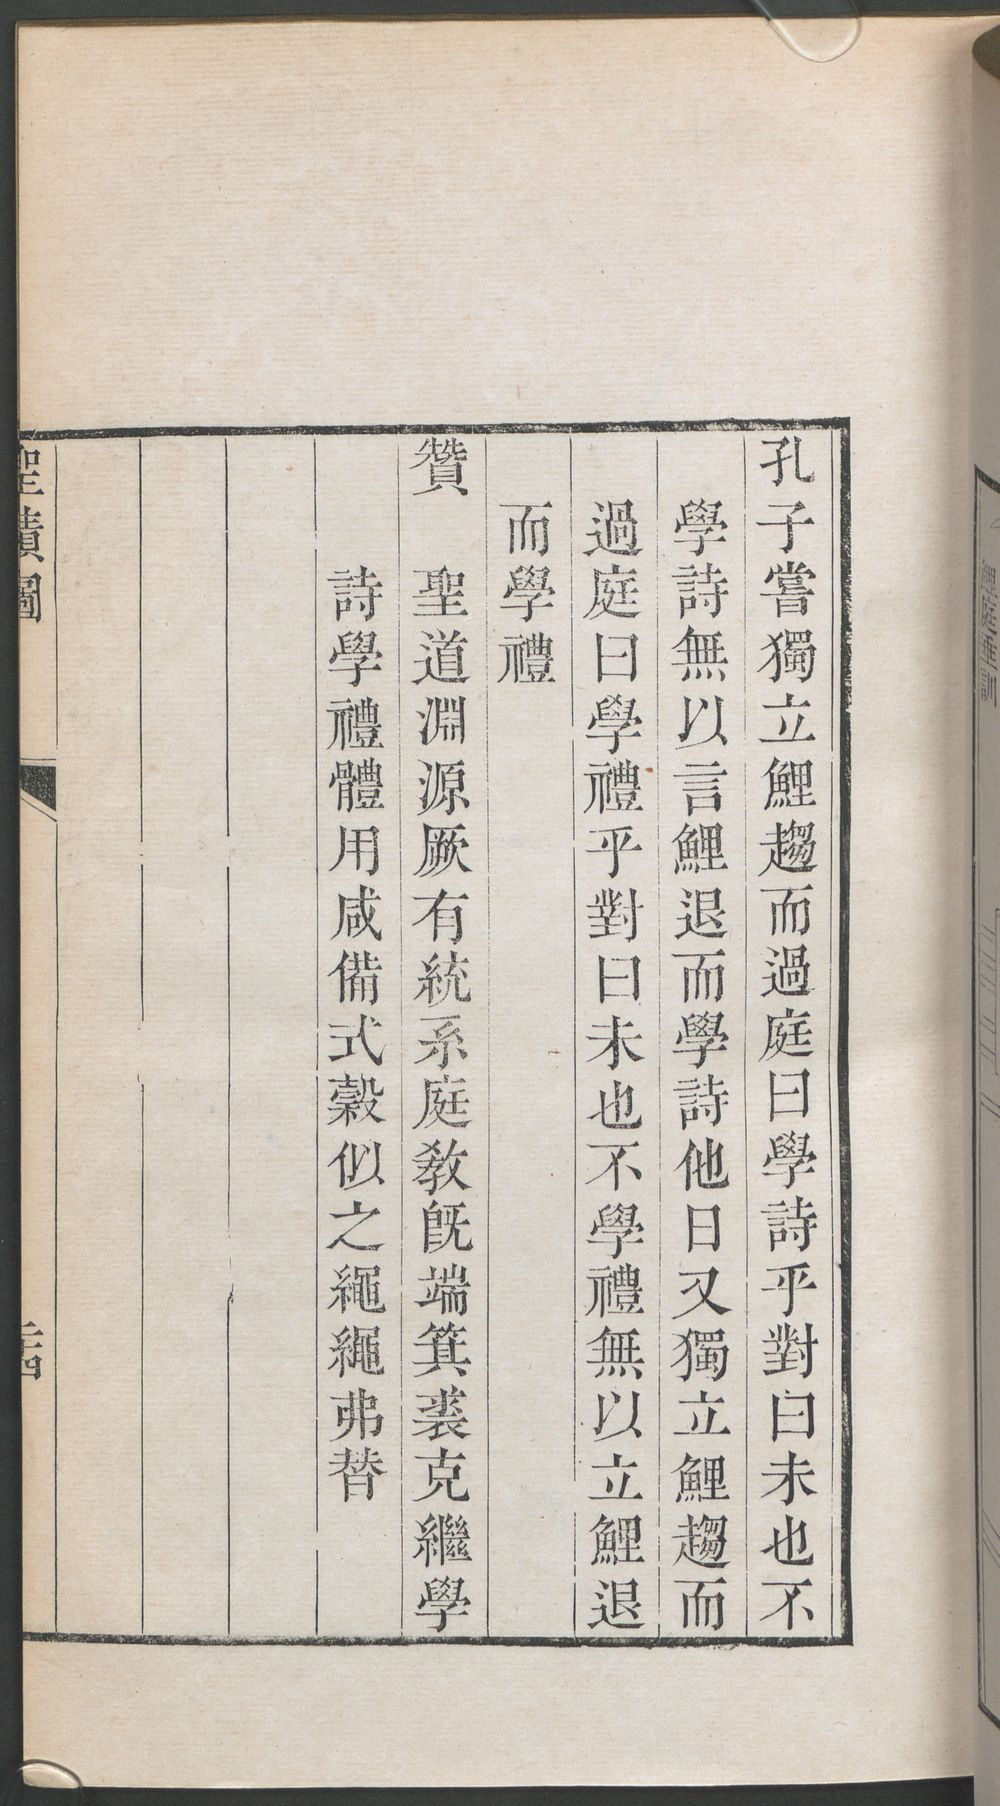 孔子嘗獨立鯉趨而過庭曰學詩乎對曰未也不
學詩無以言鯉退而學詩他日又獨立鯉趨而
過庭曰學禮乎對曰未也不學禮無以立鯉退
而學禮
贊 聖道淵源厥有統系庭敎旣端箕裘克繼學
詩學禮體用咸備式榖似之繩繩弗替
聖蹟圖 二十四
鯉庭垂訓